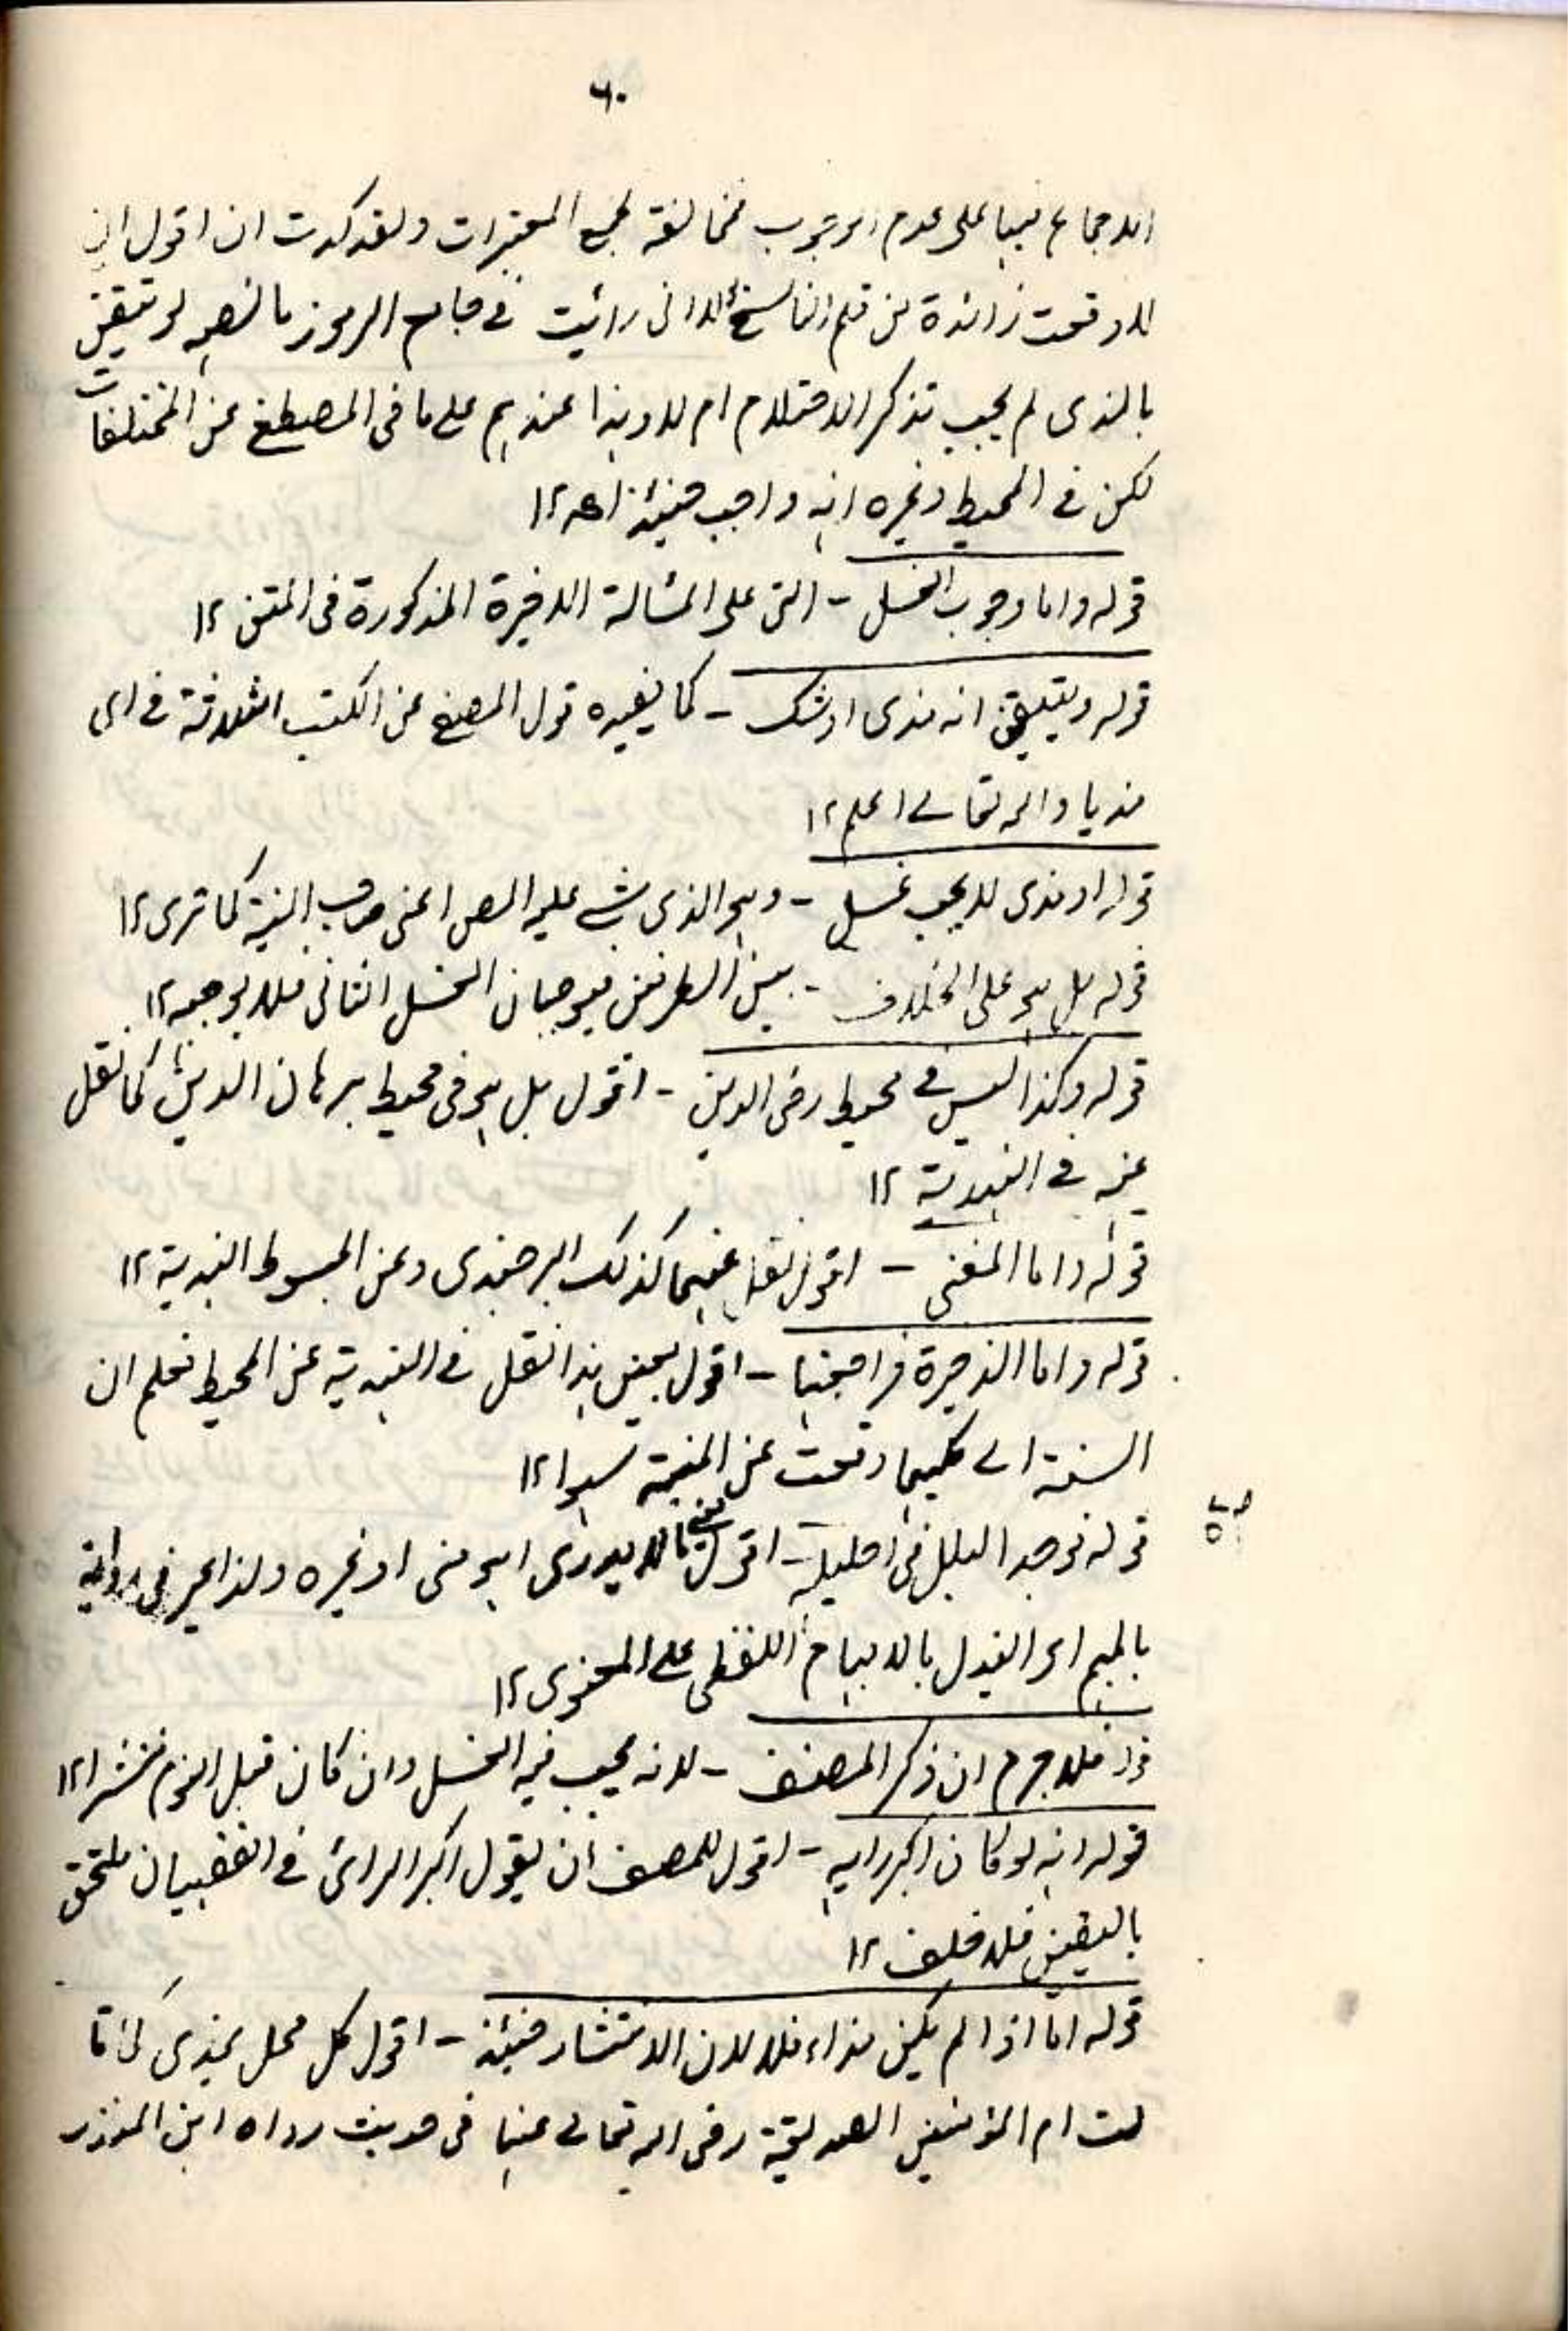 ٦٠
الاجماع فيها على عدم الوجوب مخالفة لجميع المعتبرات ولقد كدت ان اقول ان
لا وقعت زائدة من قلم الناسخ لا انى رائيت فى جامع الرموز ما نصه لو تيقن
بالمذى لم يجب تذكر الاحتلام ام لا وهذا عندهم على ما فى المصفى عن المختلفات
لكن فى المحيط وغيره انه واجب حينئذ اھ ١٢
قوله واما وجوب الغسل - التى على المسألة الاخيرة المذكورة فى المتن ١٢
قوله وتيقن انه مذى او شك - كما يفيده قول المصنف عن الكتب الثلاثة فرأى
مذيا والله تعالى اعلم ١٢
قوله او مذى لا يجب غسل - وهو الذى مشى عليه المص اعنى صاحب المنية كما ترى ١٢
قوله بل هو على الخلاف - بين الطرفين فيوجبان الغسل الثانى فلا يوجبه ١٢
قوله وكذا ليس فى محيط رضى الدين - اقول بل هو فى محيط برهان الدين كما نقل
عنه فى الهندية ١٢
قوله واما المغنى - اقول نقل عنهما كذلك البرجندى وعن المبسوط الهندية ١٢
قوله واما الذخيرة فراجعتها - اقول بعين هذا نقل فى الهندية عن المحيط فعلم ان
النسبة اليهما كليهما وقعت عن المنية سهوا ١٢
قوله فوجد البلل فى احليله - اقول يعنى لا يدرى اهو منى او غيره ولذا عبر فى رواية
بالميم اى البلل بالابهام اللفظى على المعنوى ١٢
قوله فلا جرم ان ذكر المصنف - لانه يجب فيه الغسل وان كان قبل النوم منتشرا ١٢
قوله انه لو كان اكبر رايه - اقول للمصنف ان يقول اكبر الرائ فى الفقهيات ملتحق
باليقين فلا خلف ١٢
قوله اما اذا لم يكن مذاء فلا لان الانتشار حينئذ - اقول كل فحل يمذى كما قا
لت ام المؤمنين الصديقة رضى الله تعالى عنها فى حديث رواه ابن المنذر